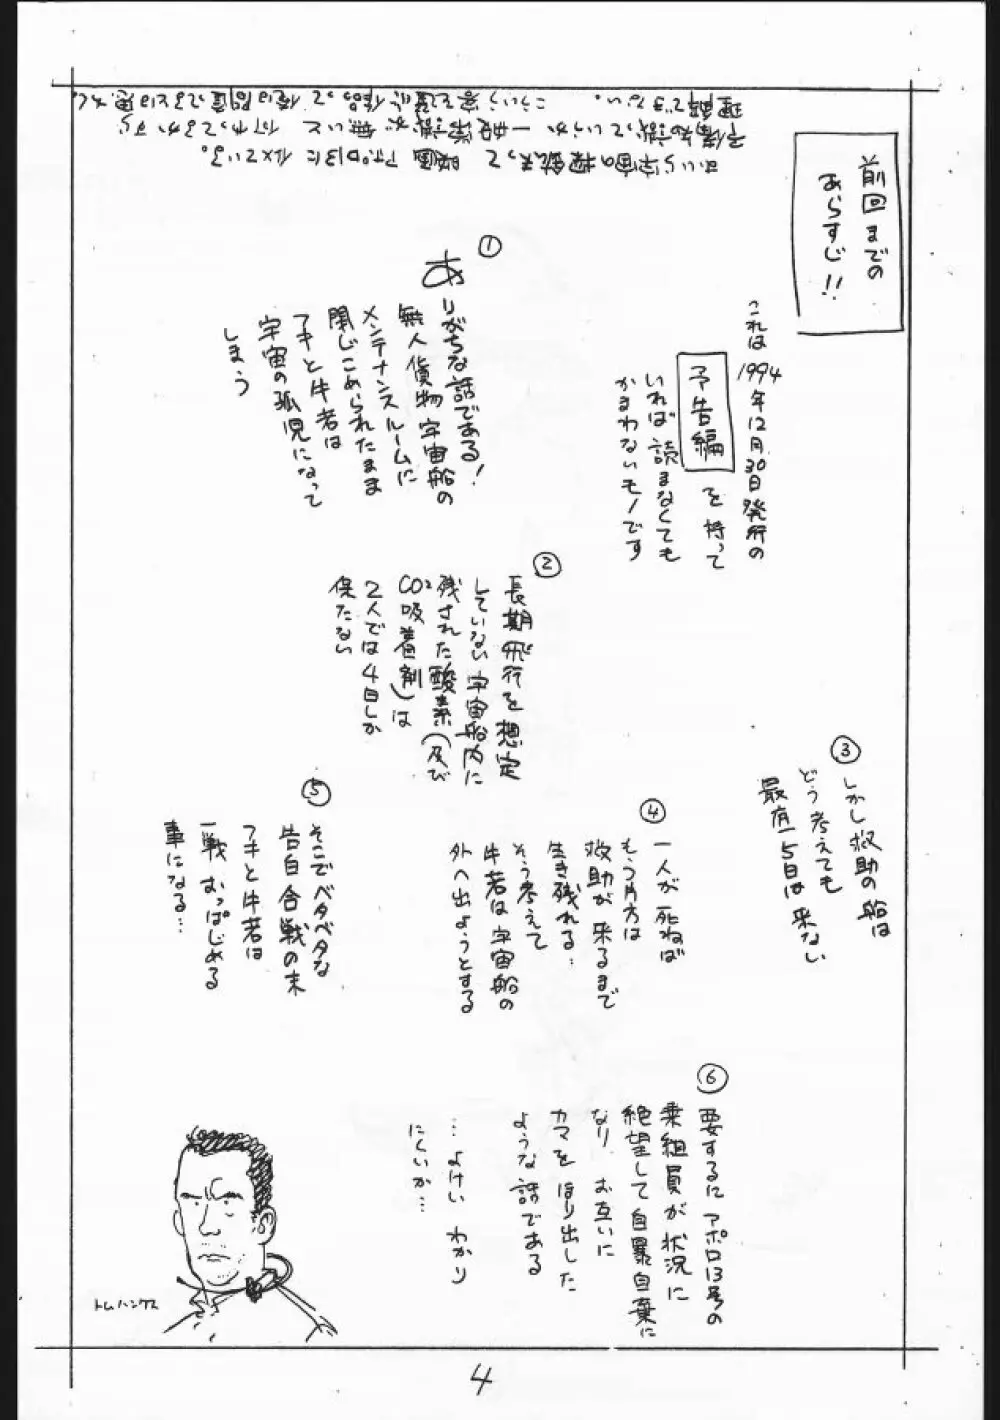 前回までの
あらすじ!!
これは1994年12月30日発行の
予告編を持って
いれば読まなくても
かまわないモノです
①
ありがちな話である!
無人貨物宇宙船の
メンテナンスルームに
閉じこめられたまま
アキと牛若は
宇宙の孤児になって
しまう
②
長期飛行を想定
していない宇宙船内に
残された酸素(及び
CO²吸着剤)は
2人では4日しか
保たない
③
しかし救助の船は
どう考えても
最底5日は来ない
④
一人が死ねば
もう片方は
救助が来るまで
生き残れる…
そう考えて
牛若は宇宙船の
外へ出ようとする
⑤
そこでベタベタな
告白合戦の末
アキと牛若は
一戦おっぱじめる
事になる…
⑥
要するにアポロ13号の
乗組員が状況に
絶望して自暴自棄に
なり お互いに
カマをほり出した
ような話である
…よけいわかり
にくいか…
トムハンクス
4